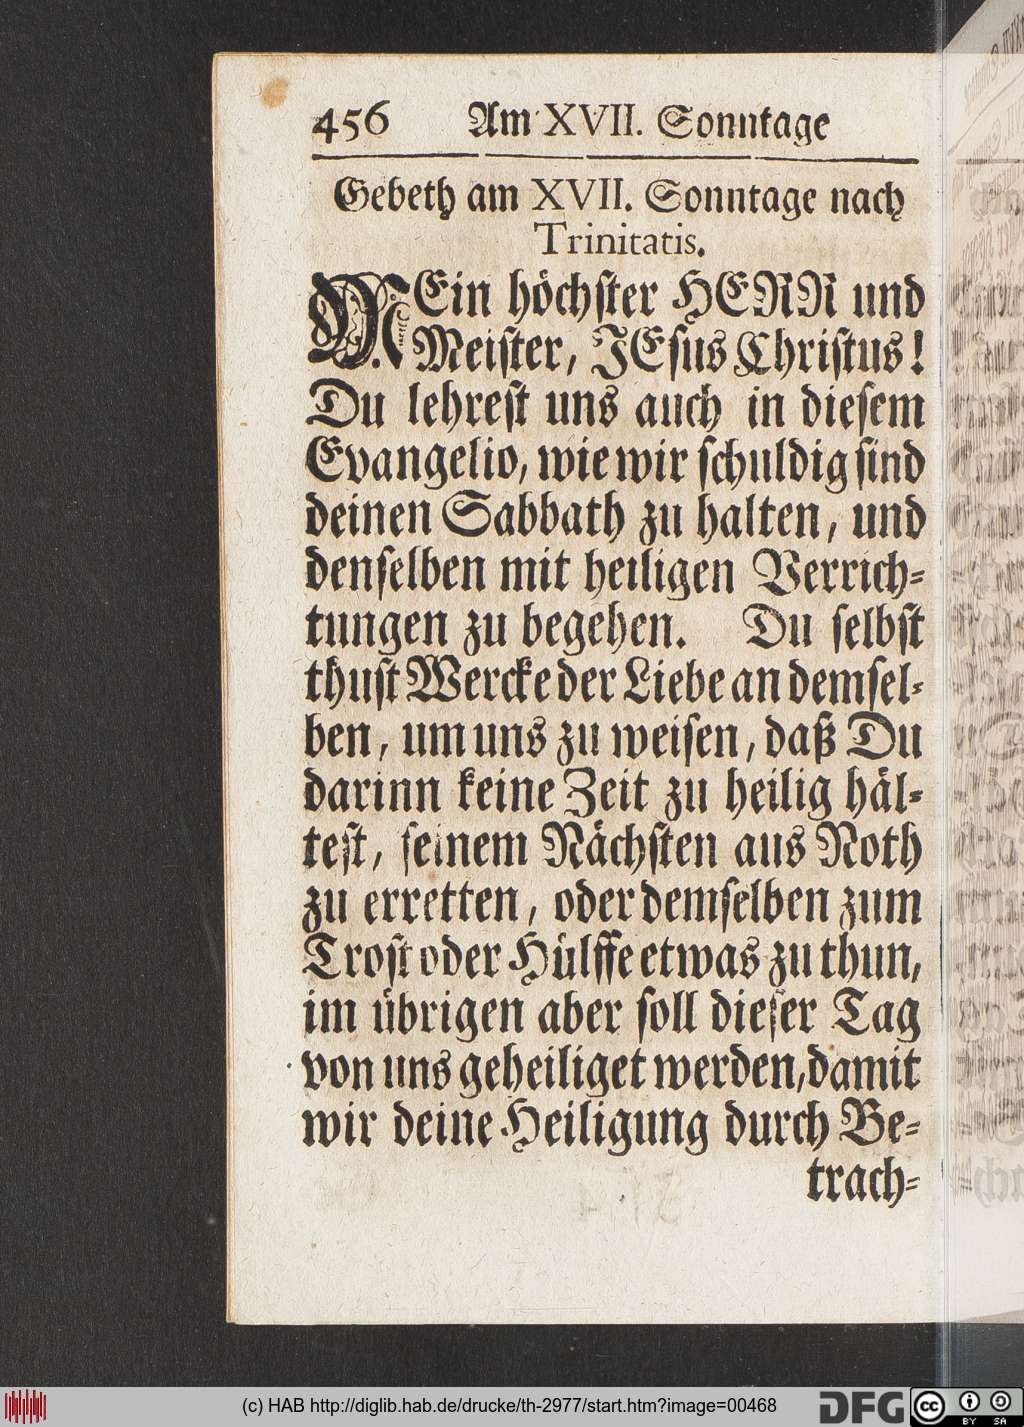 456 Am XVII. Sonntage
Gebeth am XVII. Sonntage nach
Trinitatis.
MEin höchster HERR und
Meister, JEsus Christus!
Du lehrest uns auch in diesem
Evangelio, wie wir schuldig sind
deinen Sabbath zu halten, und
denselben mit heiligen Verrich-
tungen zu begehen. Du selbst
thust Wercke der Liebe an demsel-
ben, um uns zu weisen, daß Du
darinn keine Zeit zu heilig häl-
test, seinem Nächsten aus Noth
zu erretten, oder demselben zum
Trost oder Hülffe etwas zu thun,
im übrigen aber soll dieser Tag
von uns geheiliget werden, damit
wir deine Heiligung durch Be-
trach-
(c) HAB http://diglib.hab.de/drucke/th-2977/start.htm?image=00468
DFG
cc BY SA